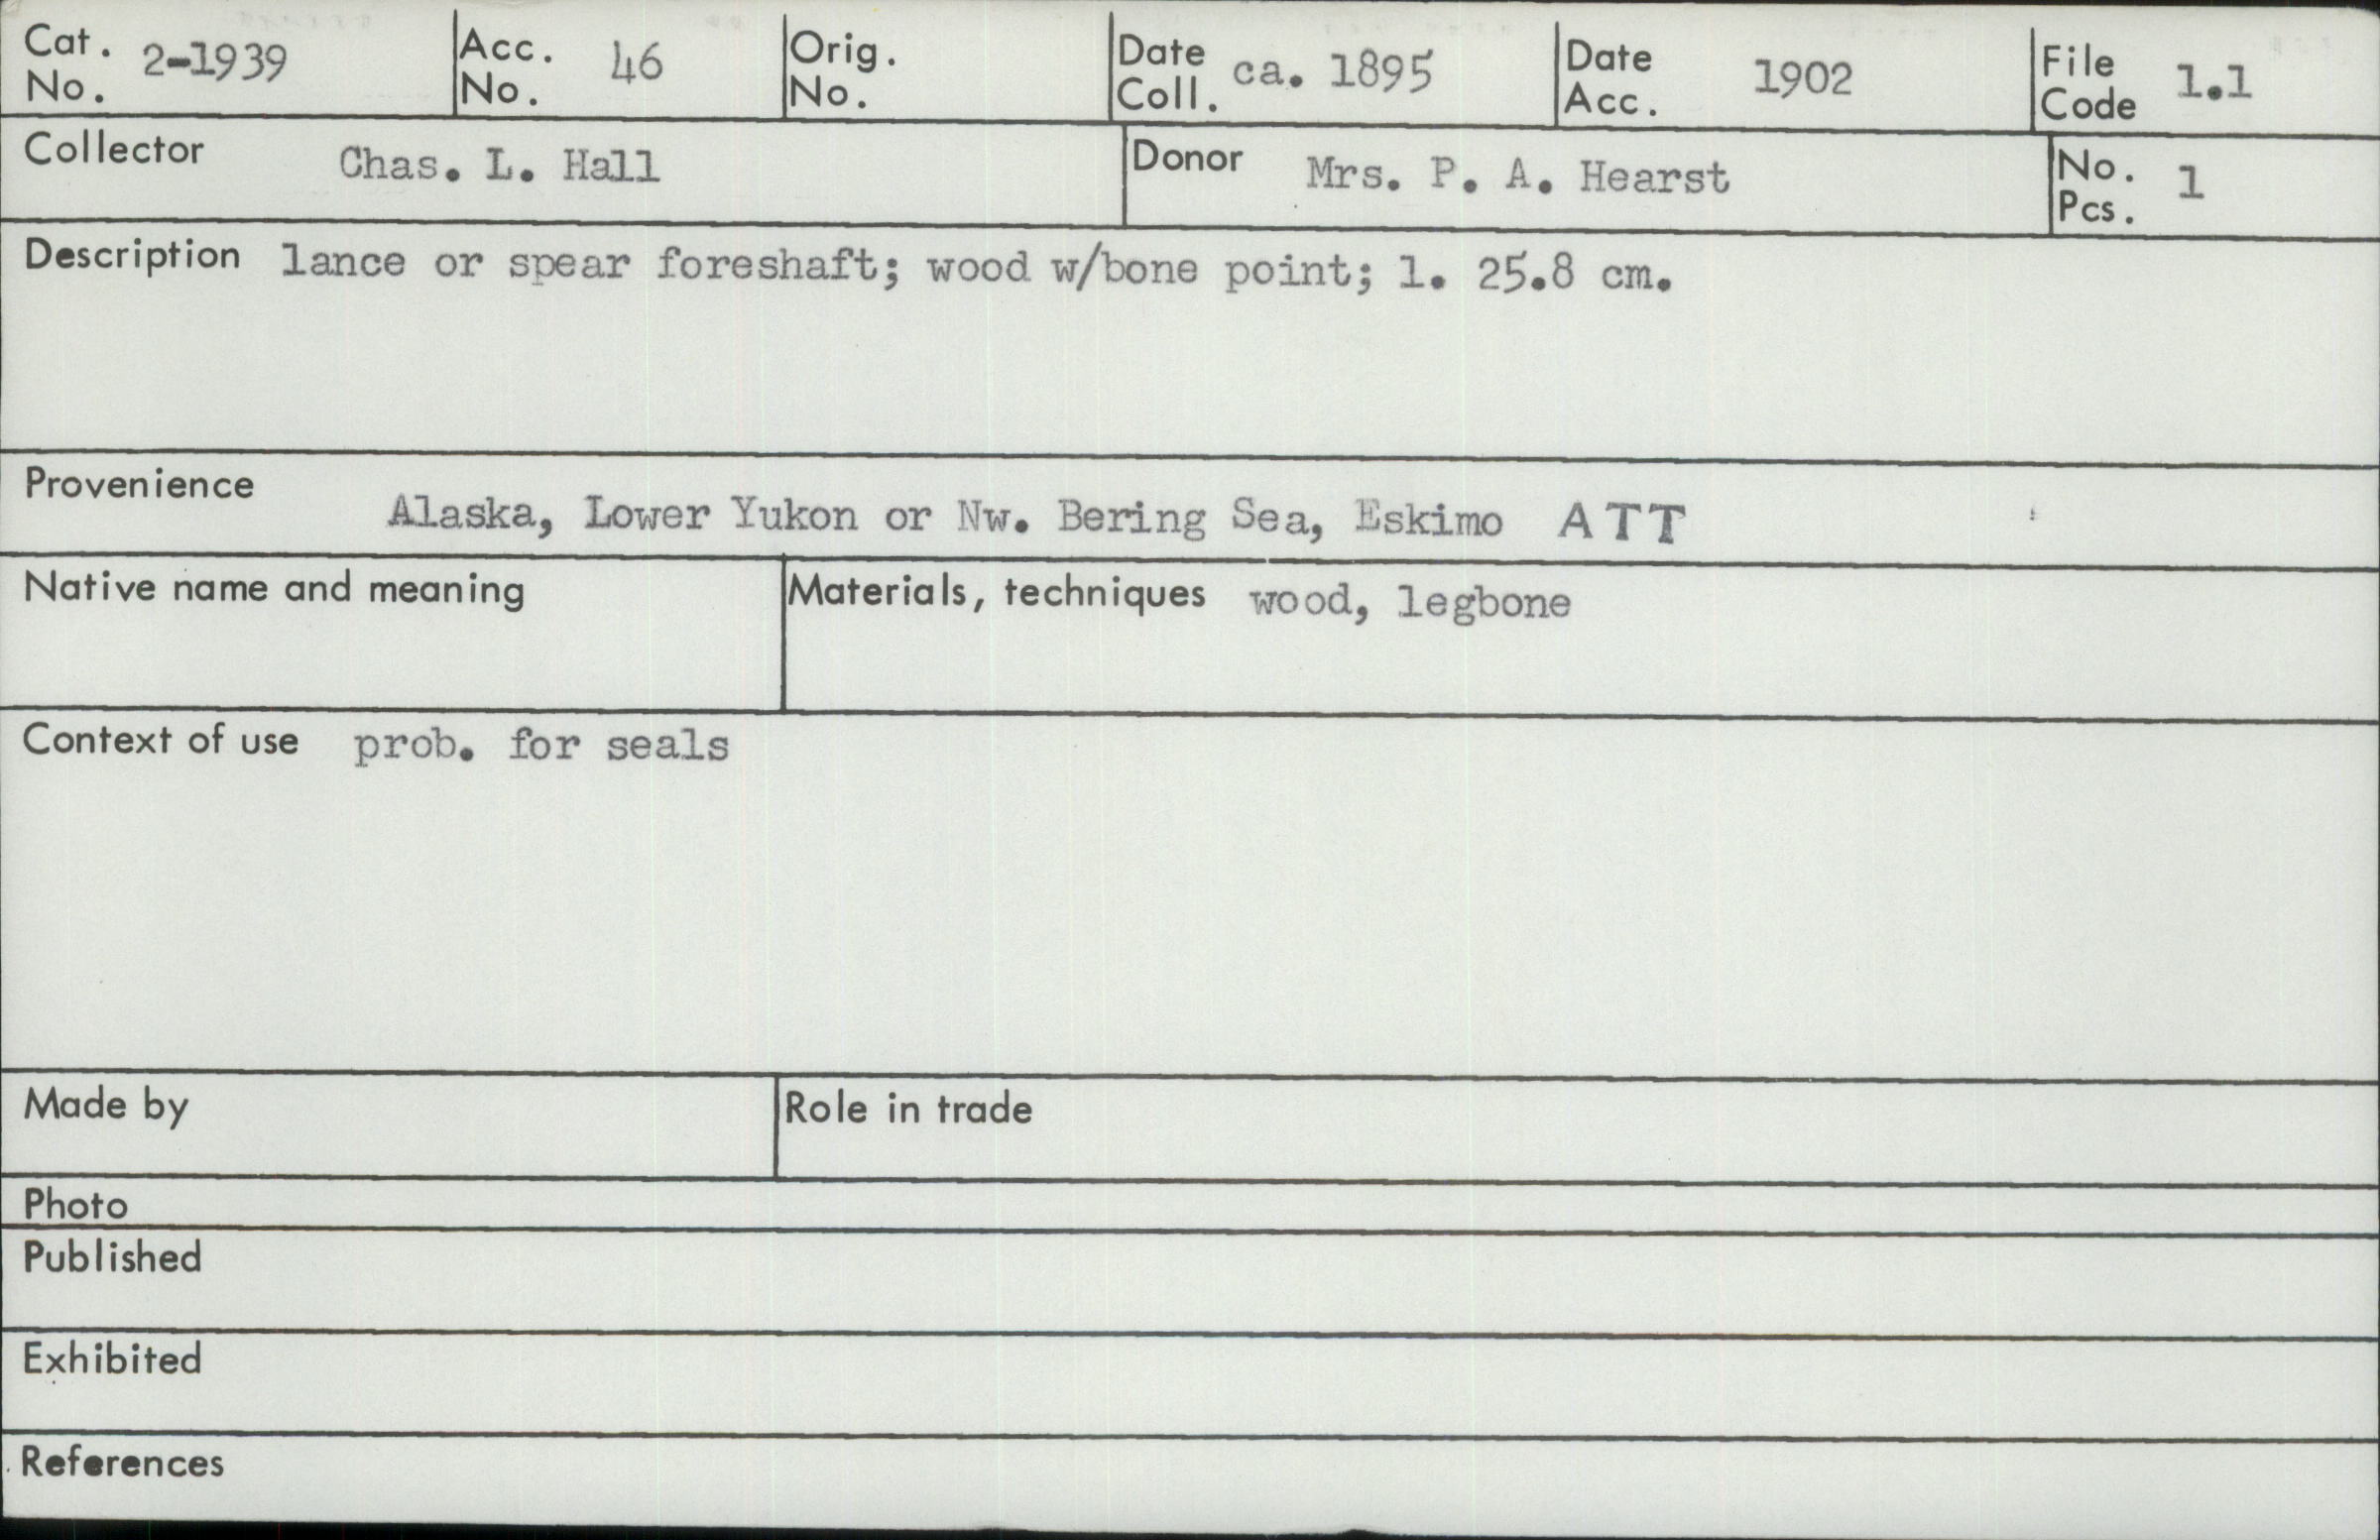 Cat. No. 2-1939 Acc. No. 46 Orig. No. Date Coll. ca. 1895 Date Acc. 1902 File Code 1.1
Collector Chas. L. Hall Donor Mrs. P. A. Hearst No. Pcs. 1
Description lance or spear foreshaft; wood w/bone point; l. 25.8 cm.
Provenience Alaska, Lower Yukon or Nw. Bering Sea, Eskimo ATT
Native name and meaning Materials, techniques wood, legbone
Context of use prob. for seals
Made by Role in trade
Photo
Published
Exhibited
References